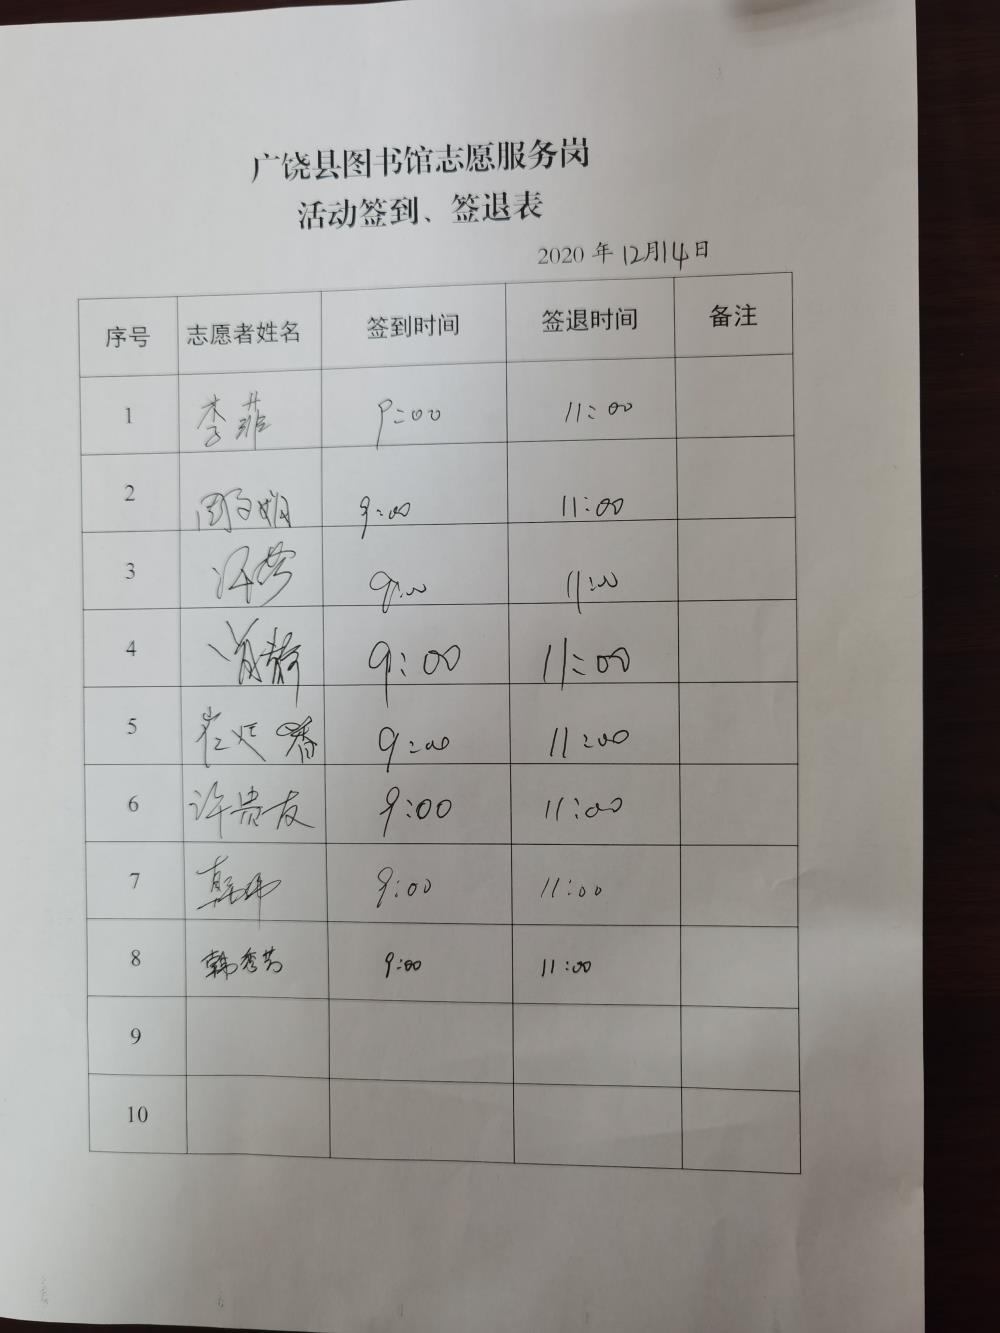 广饶县图书馆志愿服务岗
活动签到、签退表
2020 年 12月14日
序号 志愿者姓名 签到时间 签退时间 备注
1 李菲 9:00 11:00
2 9:00 11:00
3 9:00 11:00
4 肖静 9:00 11:00
5 崔廷香 9:00 11:00
6 许贵友 9:00 11:00
7 韩伟 9:00 11:00
8 韩秀芳 9:00 11:00
9
10